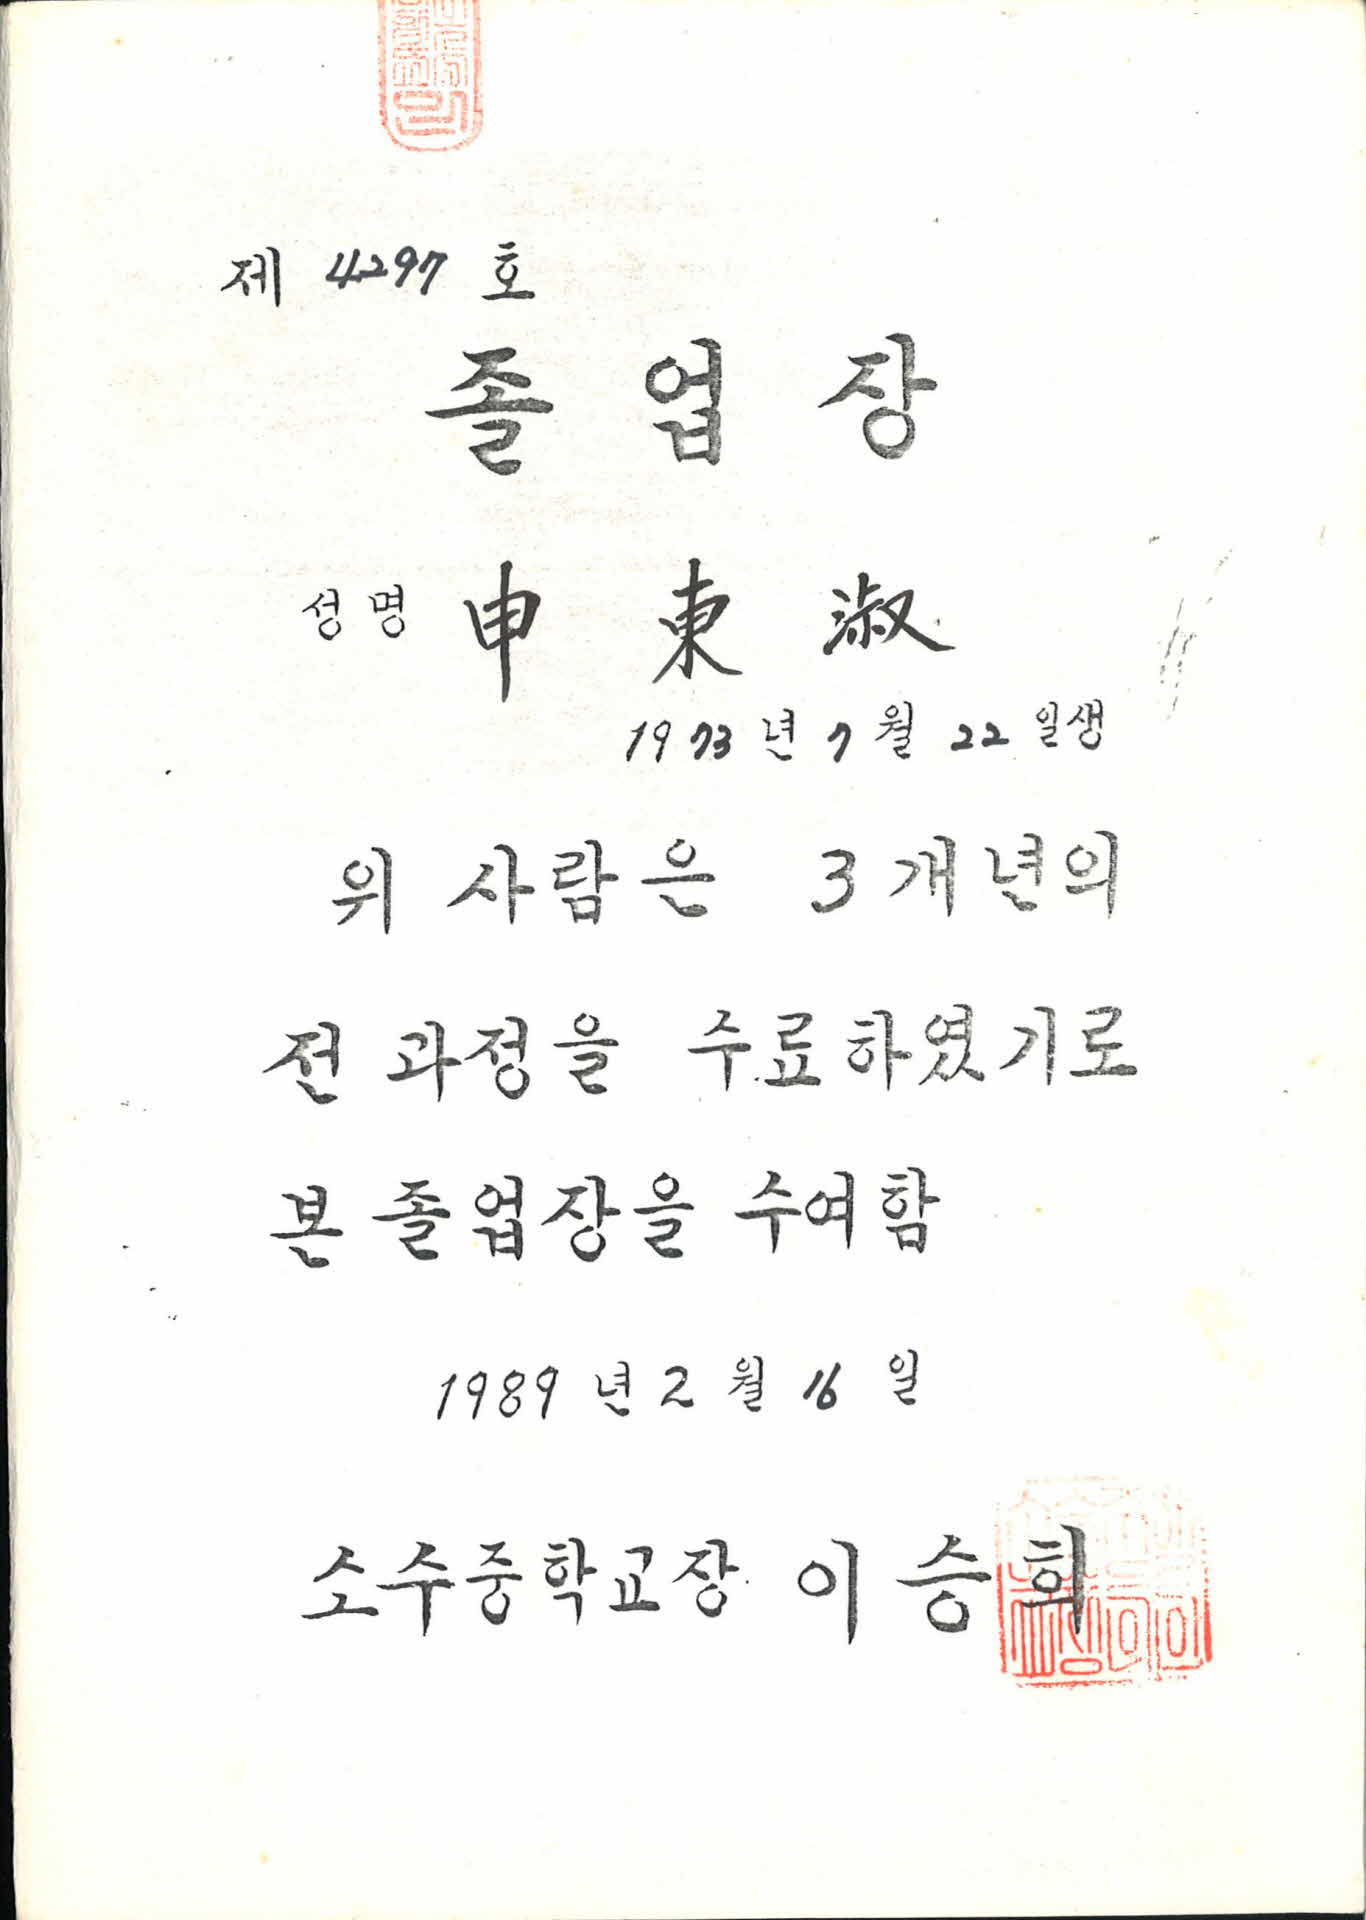 제 4297 호
졸업장
성명 申東淑
1973년 7월 22일생
위 사람은 3개년의
전 과정을 수료하였기로
본 졸업장을 수여함
1989년 2월 16일
소수중학교장 이승희